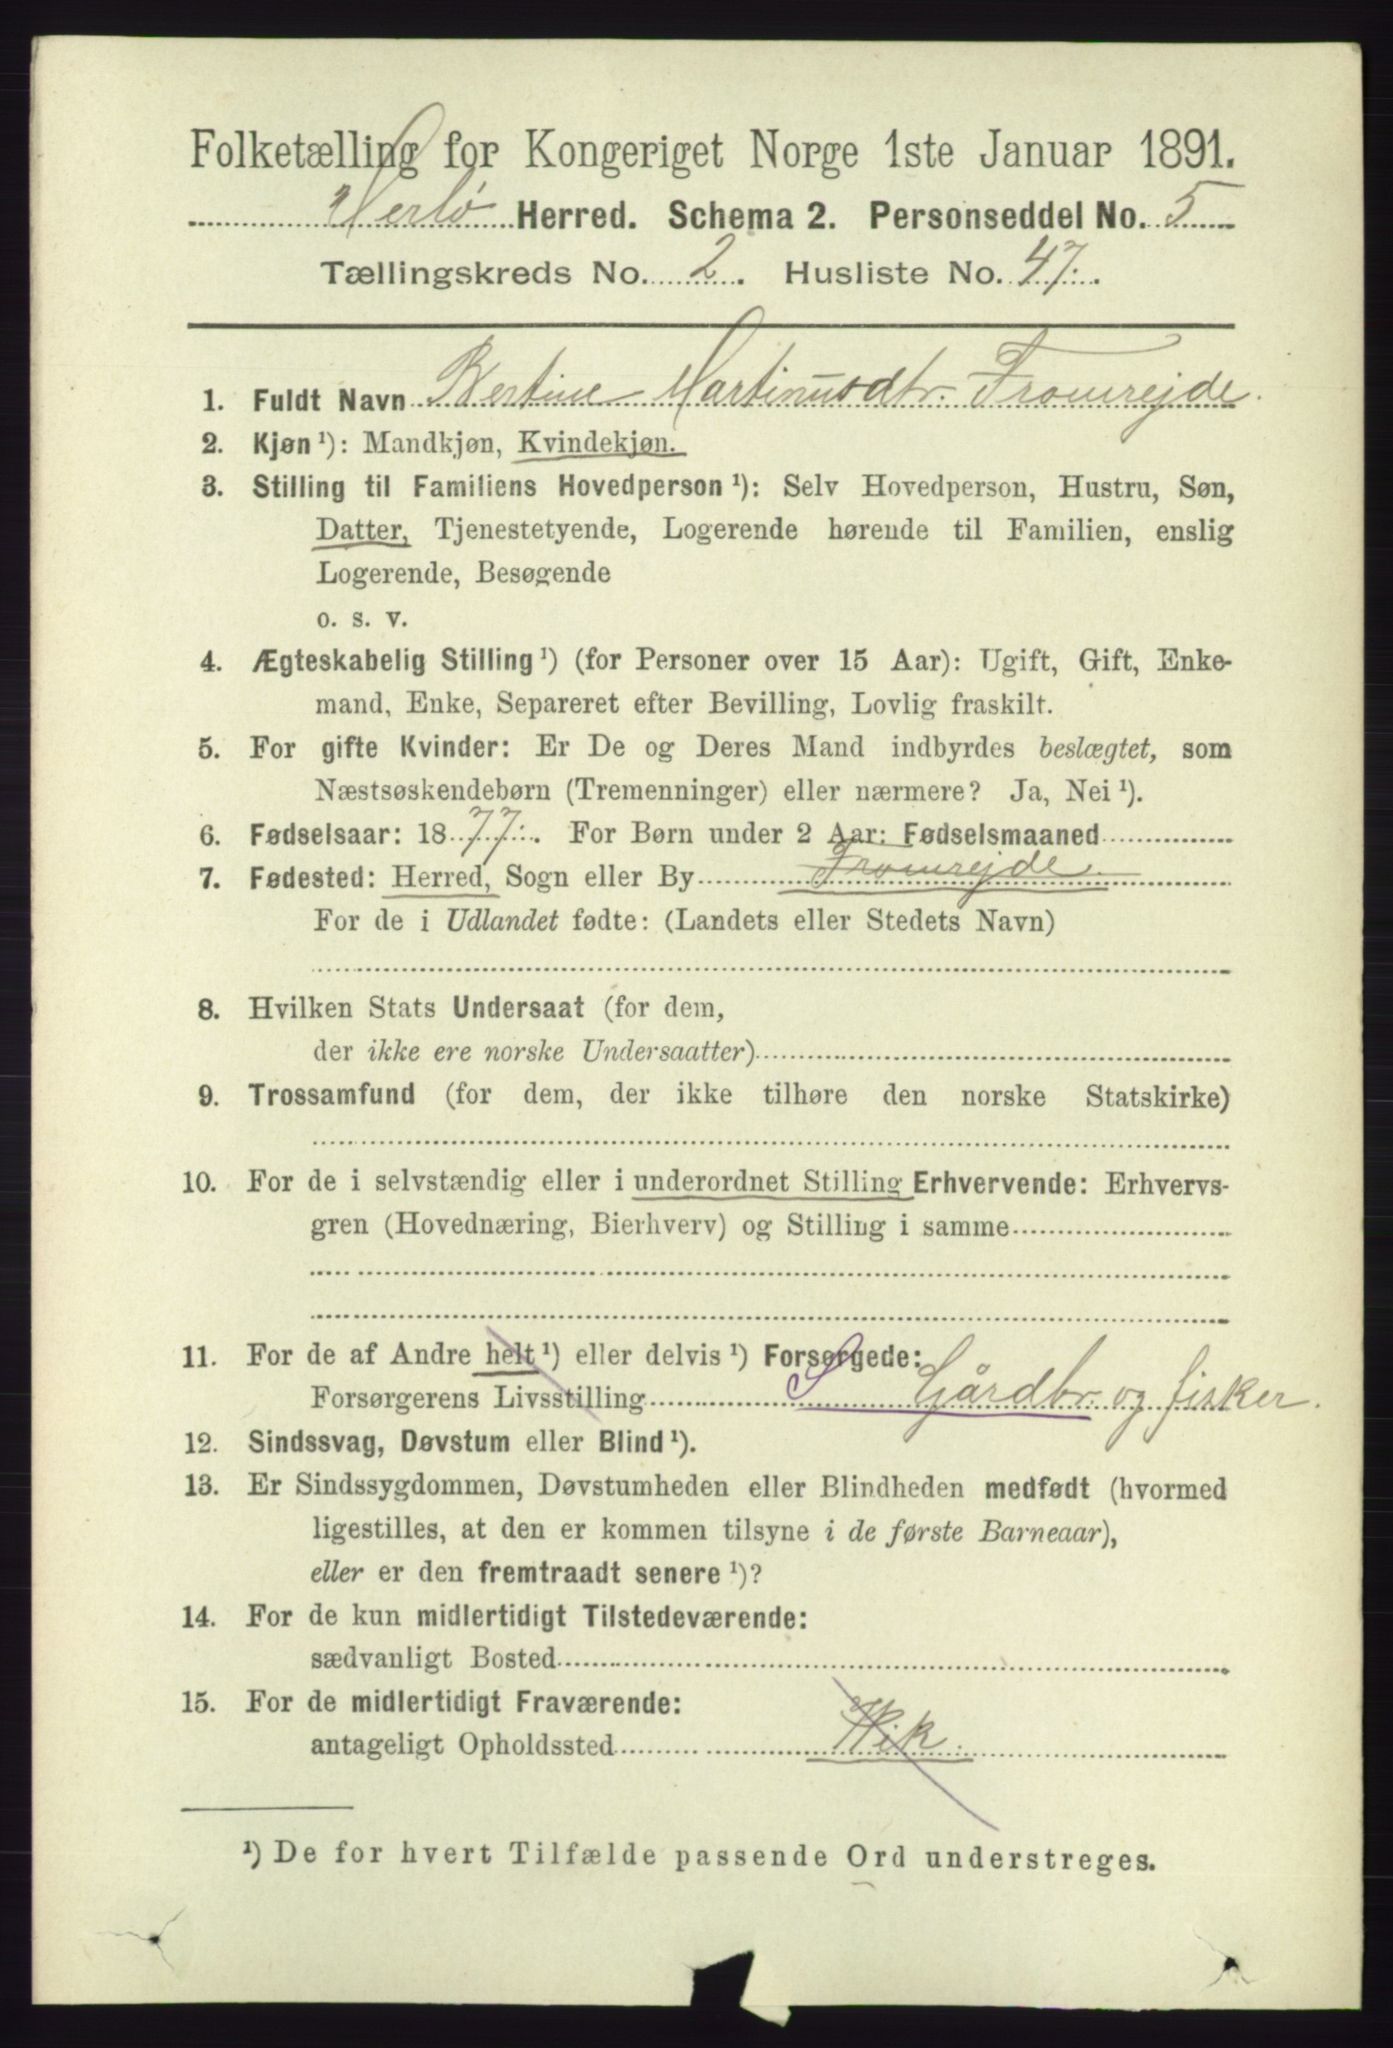 Folketælling for Kongeriget Norge 1ste Januar 1891.
Herlø Herred. Schema 2. Personseddel No. 5
Tællingskreds No. 2. Husliste No. 47.
1. Fuldt Navn Bertine Martinusdtr. Fromrejde.
2. Kjøn¹): Mandkjøn, Kvindekjøn.
3. Stilling til Familiens Hovedperson¹): Selv Hovedperson, Hustru, Søn,
Datter, Tjenestetyende, Logerende hørende til Familien, enslig
Logerende, Besøgende
o. s. v.
4. Ægteskabelig Stilling¹) (for Personer over 15 Aar): Ugift, Gift, Enke-
mand, Enke, Separeret efter Bevilling, Lovlig fraskilt.
5. For gifte Kvinder: Er De og Deres Mand indbyrdes beslægtet, som
Næstsøskendebørn (Tremenninger) eller nærmere? Ja, Nei¹).
6. Fødselsaar: 1877. For Børn under 2 Aar: Fødselsmaaned
7. Fødested: Herred, Sogn eller By Fromrejde.
For de i Udlandet fødte: (Landets eller Stedets Navn)
8. Hvilken Stats Undersaat (for dem,
der ikke ere norske Undersaatter)
9. Trossamfund (for dem, der ikke tilhøre den norske Statskirke)
10. For de i selvstændig eller i underordnet Stilling Erhvervende: Erhvervs-
gren (Hovednæring, Bierhverv) og Stilling i samme
11. For de af Andre helt¹) eller delvis¹) Forsørgede:
Forsørgerens Livsstilling S Gårdbr. og fisker.
12. Sindssvag, Døvstum eller Blind¹).
13. Er Sindssygdommen, Døvstumheden eller Blindheden medfødt (hvormed
ligestilles, at den er kommen tilsyne i de første Barneaar),
eller er den fremtraadt senere¹)?
14. For de kun midlertidigt Tilstedeværende:
sædvanligt Bosted
15. For de midlertidigt Fraværende:
antageligt Opholdssted Wik.
¹) De for hvert Tilfælde passende Ord understreges.